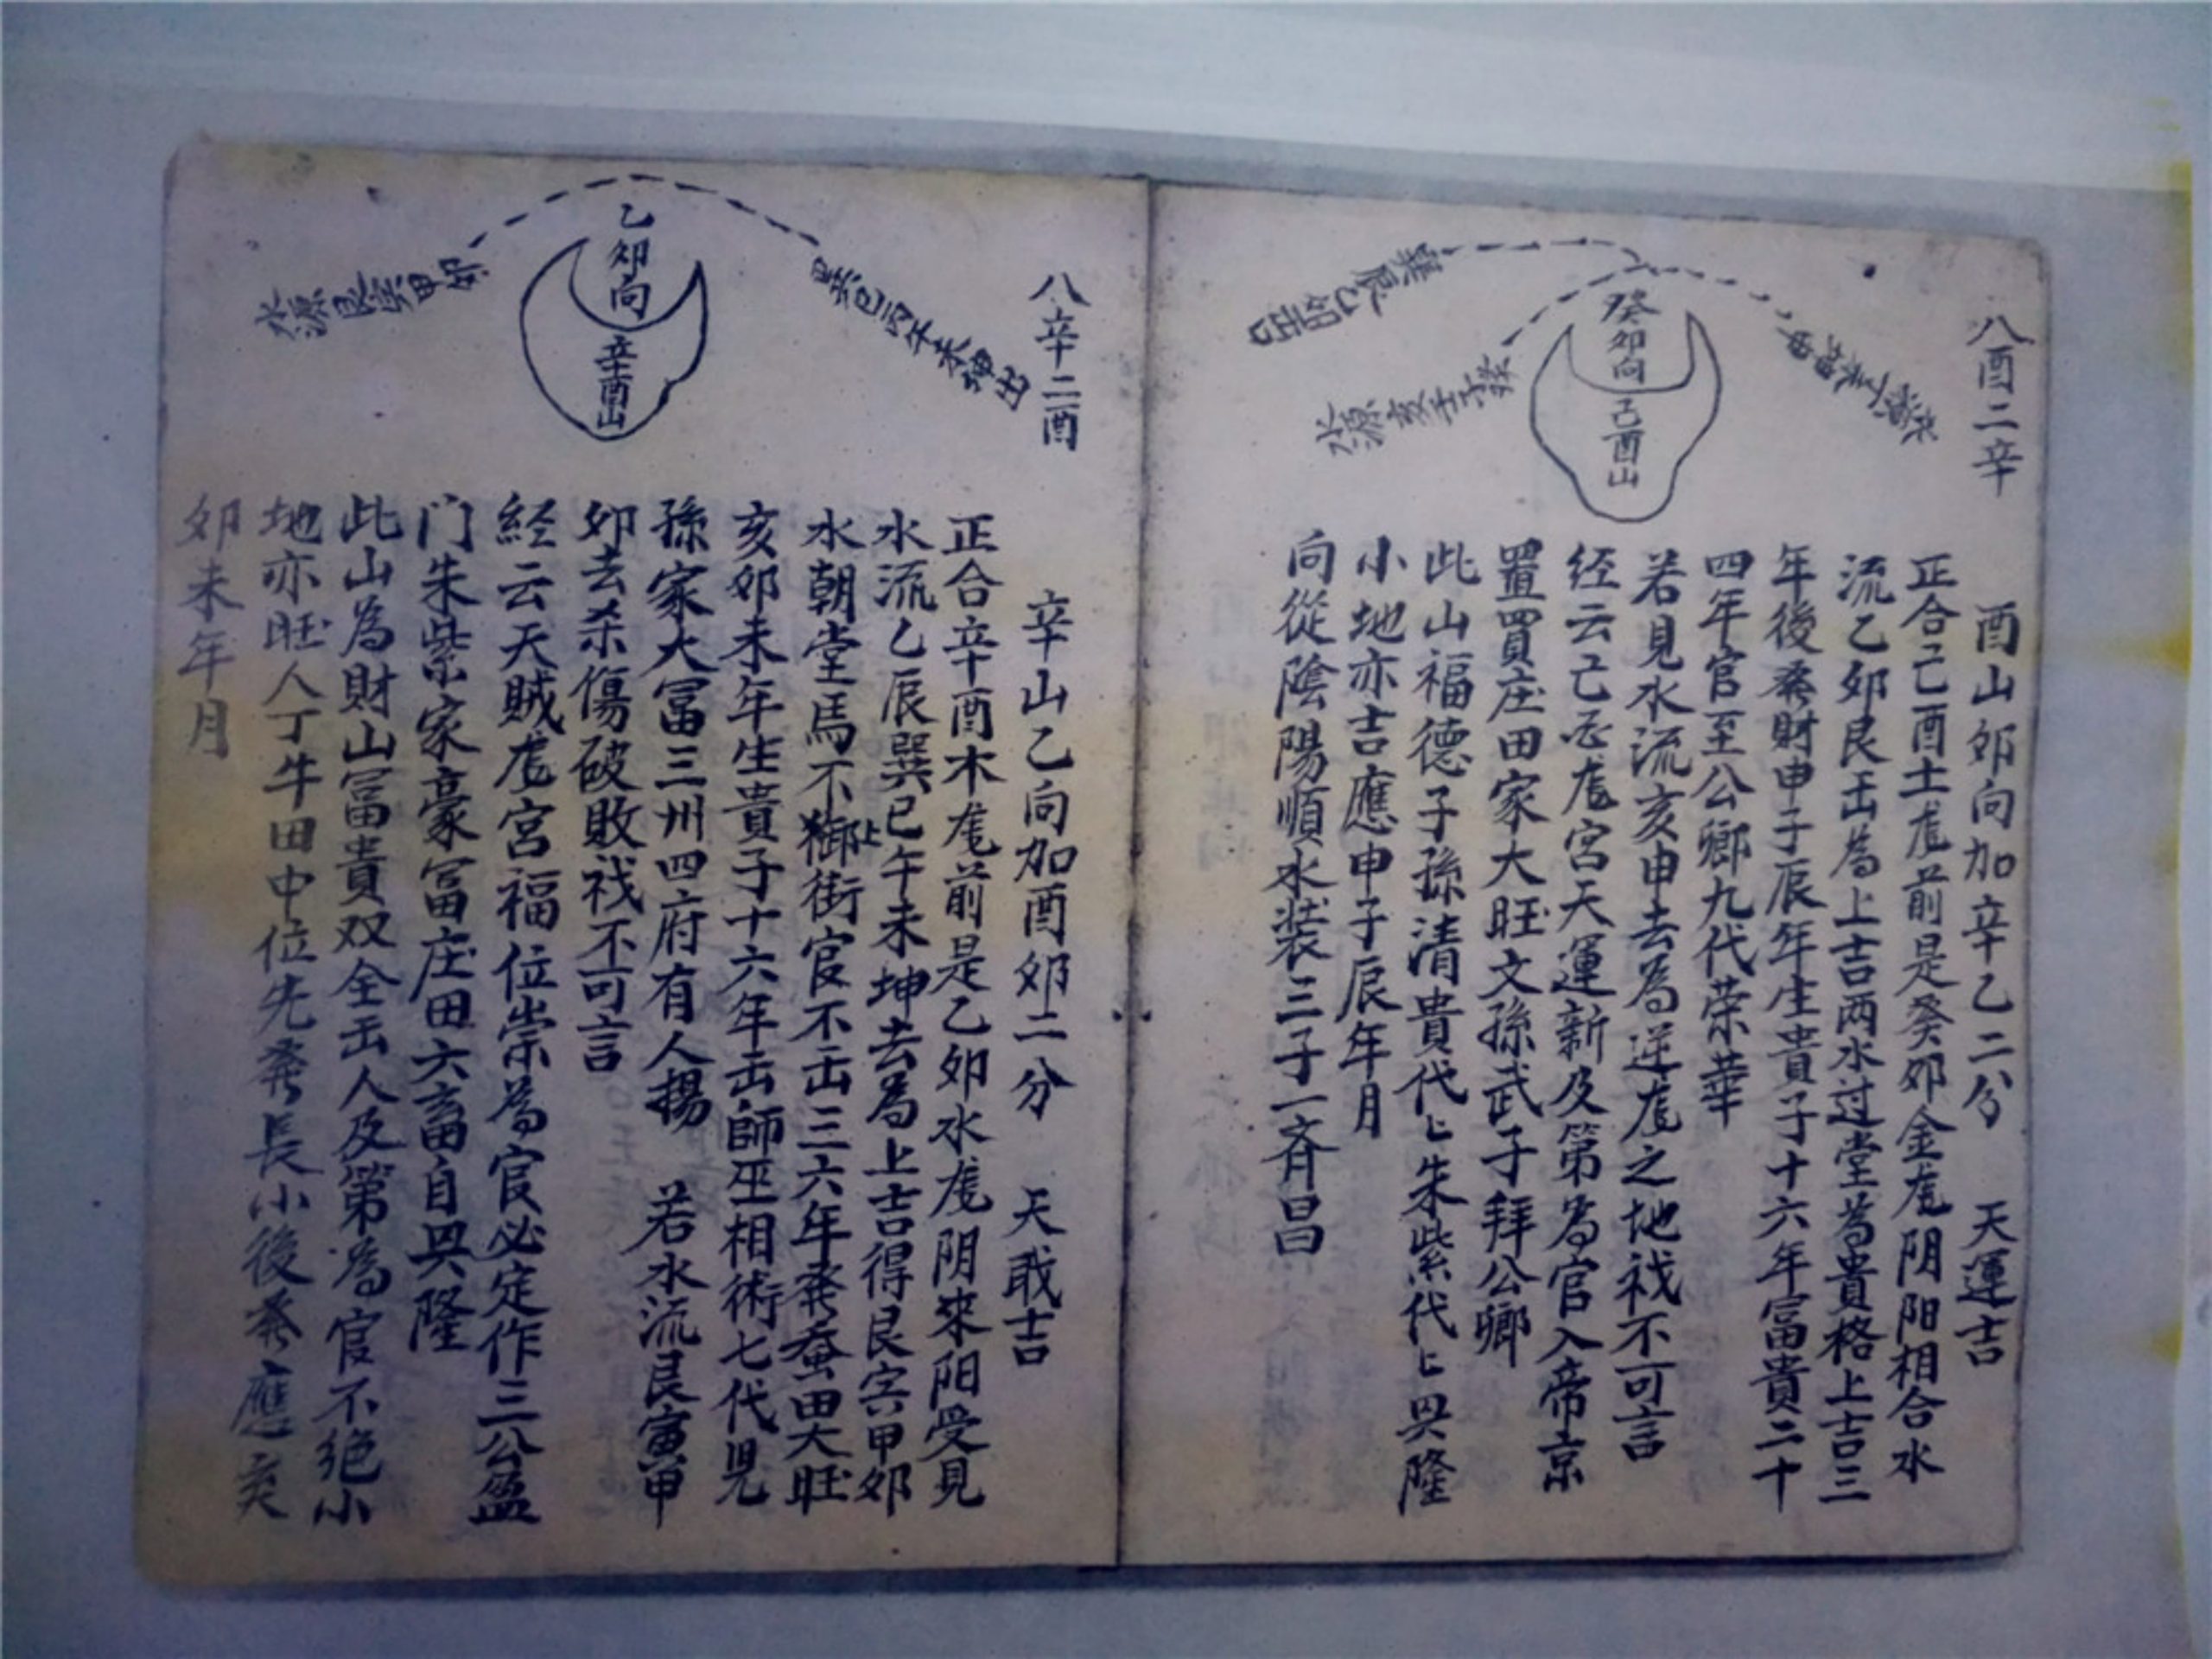 八酉二辛
癸卯向
己酉山
水源亥壬子癸
酉山卯向加辛乙二分 天運吉
正合己酉土尨前是癸卯金尨阴阳相合水
流乙卯艮出為上吉两水过堂為貴格上吉三
年後發財申子辰年生貴子十六年富貴二十
四年官至公卿九代荣華
若見水流亥申去為逆尨之地衩不可言
经云己丕尨宮天運新及第為官入帝京
置買庄田家大旺文孫武子拜公卿
此山福德子孫清貴代々朱紫代々興隆
小地亦吉應申子辰年月
向從陰陽順水装三子一齐昌
八辛二酉
乙卯向
辛酉山
水源艮寅甲卯
巽巳丙午未坤出
辛山乙向加酉卯二分 天戝吉
正合辛酉木尨前是乙卯水尨阴来阳受見
水流乙辰巽巳午未坤去為上吉得艮宾甲卯
水朝堂馬不御上街官不出三六年發蚕田大旺
亥卯未年生貴子十六年出師巫相術七代児
孫家大富三州四府有人揚 若水流艮寅甲
卯去杀傷破敗衩不可言
経云天贼尨宮福位崇為官必定作三公盈
门朱紫家豪富庄田六畜自興隆
此山為財山富貴双全出人及第為官不绝小
地亦旺人丁牛田中位先發長小後發應亥
卯未年月